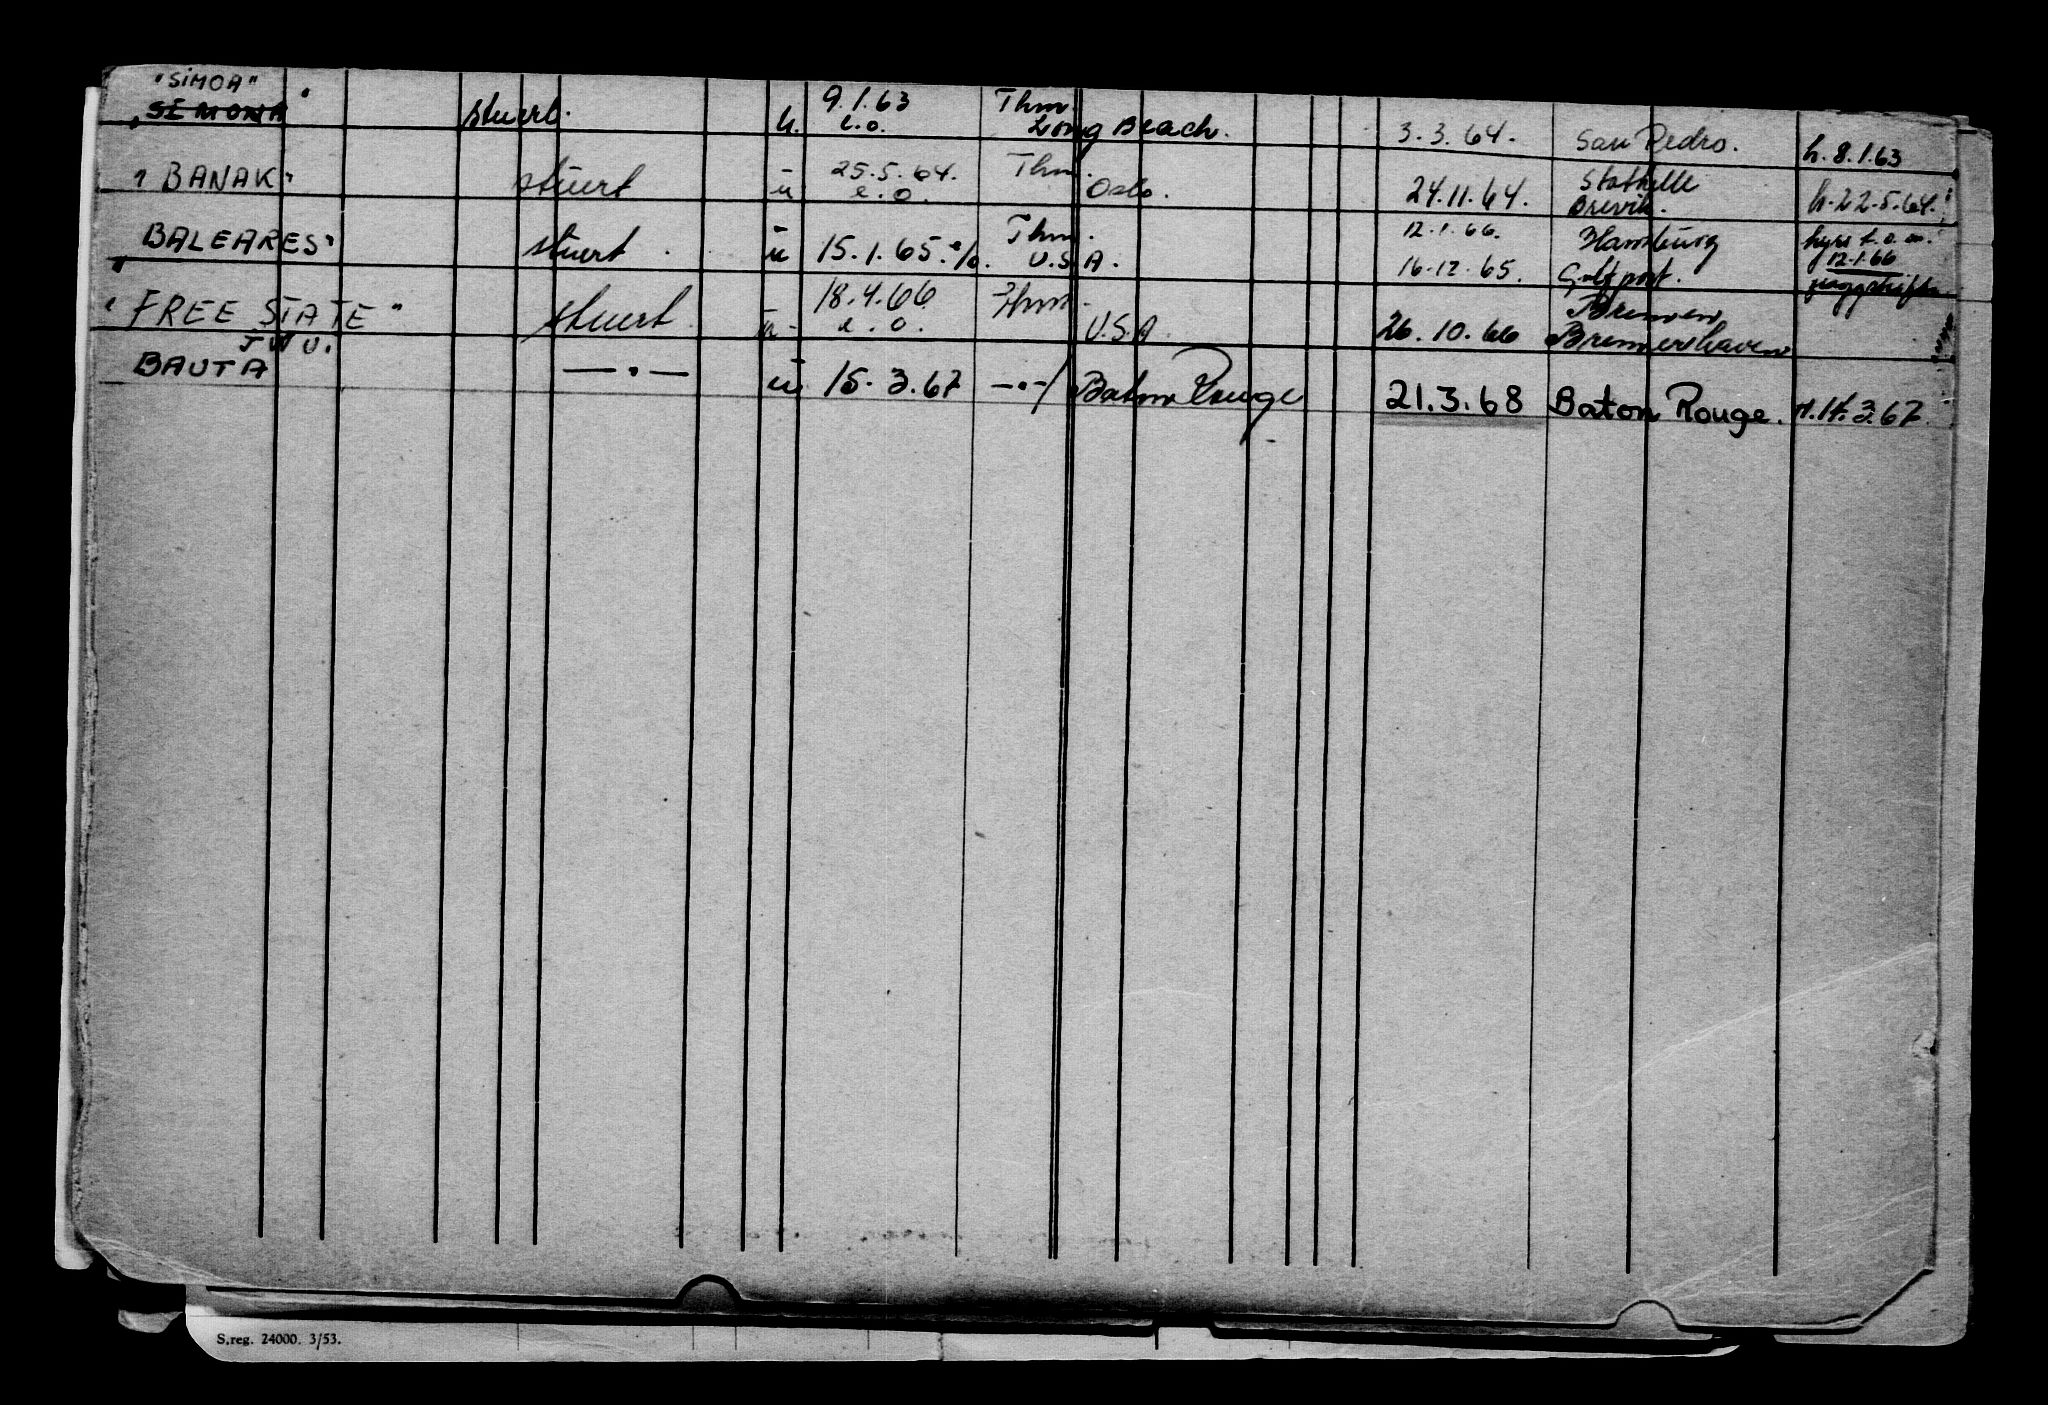 "SIMOA"
SIMONA stuert. u. 9.1.63 e.o. Thm. Long Beach. 3.3.64. San Pedro. h. 8.1.63
"BANAK" stuert u 25.5.64. e.o. Thm. Oslo. 24.11.64. Stathelle Brevik. h. 22.5.64.
BALEARES" stuert. u 15.1.65. e/o. Thm. U.S.A. 12.1.66. Hamburg hyre t.o.m. 12.1.66
16.12.65. Gulfport.
"FREE STATE" stuert. u. 18.4.66 e.o. Thm. U.S.A. 26.10.66 Bremen Bremerhaven
BAUTA —.— u 15.3.67 —.—/ Baton Rouge 21.3.68 Baton Rouge. 3.67.
S.reg. 24000. 3/53.